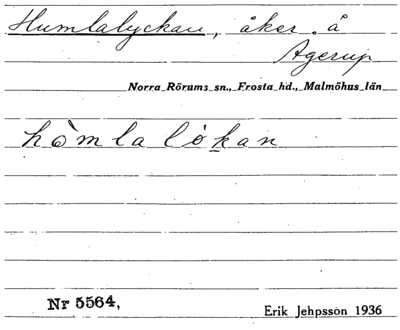 Humlalyckan, åker å
Agerup
Norra Rörums sn., Frosta hd., Malmöhus län
hòmlalókan
Nr 5564,
Erik Jehpsson 1936